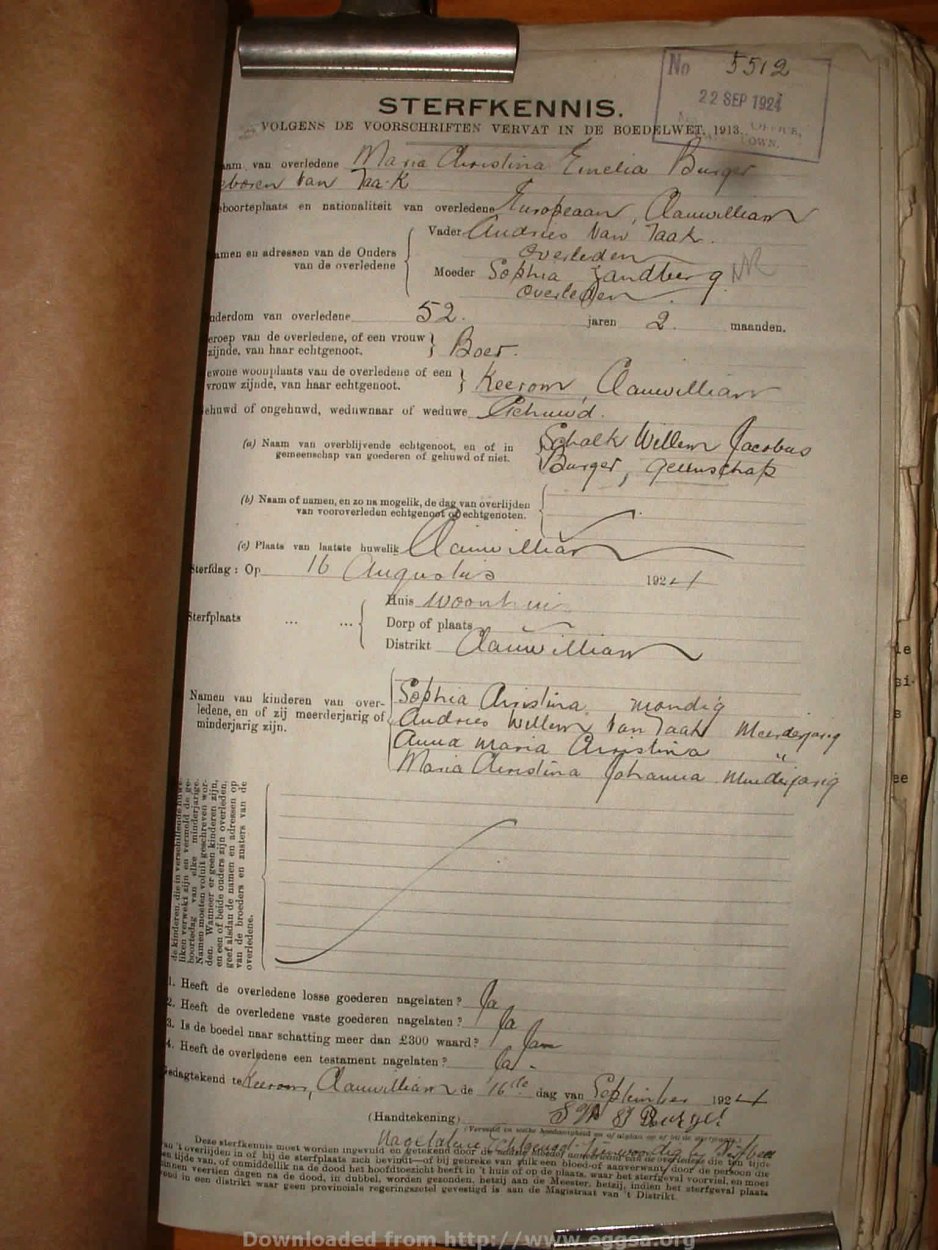 No 5512
22 SEP 1924
STERFKENNIS.
VOLGENS DE VOORSCHRIFTEN VERVAT IN DE BOEDELWET, 1913.
aam van overledene Maria Christina Emelia Burger
eboren Van Taa-K
eboorteplaats en nationaliteit van overledene Europeaan, Clanwilliam
Vader Andries Van Taak.
amen en adressen van de Ouders van de overledene
overleden
Moeder Sophia Zandberg
overleden
nderdom van overledene 52. jaren 2. maanden.
eroep van de overledene, of een vrouw zijnde, van haar echtgenoot. Boer.
ewone woonplaats van de overledene of een vrouw zijnde, van haar echtgenoot. Keerom, Clanwilliam
ehuwd of ongehuwd, weduwnaar of weduwe Gehuwd.
(a) Naam van overblijvende echtgenoot, en of in gemeenschap van goederen of gehuwd of niet.
Schalk Willem Jacobus
Burger, gemenschap
(b) Naam of namen, en zo na mogelik, de dag van overlijden
van vooroverleden echtgenoot of echtgenoten.
(c) Plaats van laatste huwelik Clanwilliam
Sterfdag : Op 16 Augustus 1924
Huis Woonhuis
Sterfplaats ... ... Dorp of plaats
Distrikt Clanwilliam
Namen van kinderen van over-
ledene, en of zij meerderjarig of
minderjarig zijn.
Sophia Christina mondig
Andries Willem Van Taak Meerderjarig
Anna Maria Christina "
Maria Christina Johanna Minderjarig
de kinderen, die in verschillende huwe-
liken verwekt zijn en vermeld de ge-
boortedag van elke minderjarige.
Namen moeten voluit geschreven wor-
den. Wanneer er geen kinderen zijn,
en een of beide ouders zijn overleden,
geef alsdan de namen en adressen op
van de broeders en zusters van de
overledene.
1. Heeft de overledene losse goederen nagelaten ? Ja
2. Heeft de overledene vaste goederen nagelaten ? Ja
3. Is de boedel naar schatting meer dan £300 waard ? Ja
4. Heeft de overledene een testament nagelaten ? Ja.
edagtekend te Keerom, Clanwilliam de 16de dag van September 1924
(Handtekening) S W J Burger
Nagelatene Echtgenoot
Deze sterfkennis moet worden ingevuld en getekend door de
van 't overlijden in of bij de sterfplaats zich bevindt—of bij gebreke van zulk een bloed-of aanverwant, door de persoon die ten tijde
en tijde van, of onmiddellik na de dood het hoofdtoezicht heeft in 't huis of op de plaats, waar het sterfgeval voorviel, en moet
innen veertien dagen na de dood, in dubbel, worden gezonden, hetzij aan de Meester, hetzij, indien het sterfgeval plaats
vond in een distrikt waar geen provinciale regeringszetel gevestigd is aan de Magistraat van 't Distrikt.
Downloaded from http://www.eggsa.org